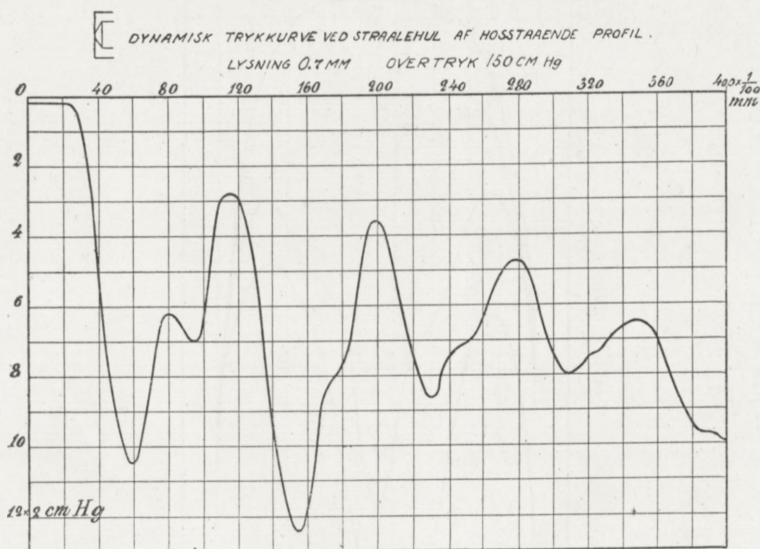 DYNAMISK TRYKKURVE VED STRAALEHUL AF HOSSTAAENDE PROFIL.
LYSNING 0.7 MM OVERTRYK 150 CM Hg
0 40 80 120 160 200 240 280 320 360 400 x 1/100 mm
2
4
6
8
10
12 x 2 cm Hg